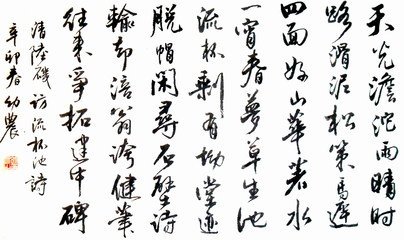 天光澹沱雨晴時
路滑泥松策馬遲
四面好山華著水
一宵春夢草生池
流杯剩有坳堂迹
脱帽閑尋石壁詩
輸却涪翁誇健筆
往來爭拓建中碑
清陸磯訪流杯池詩
辛卯春幼農